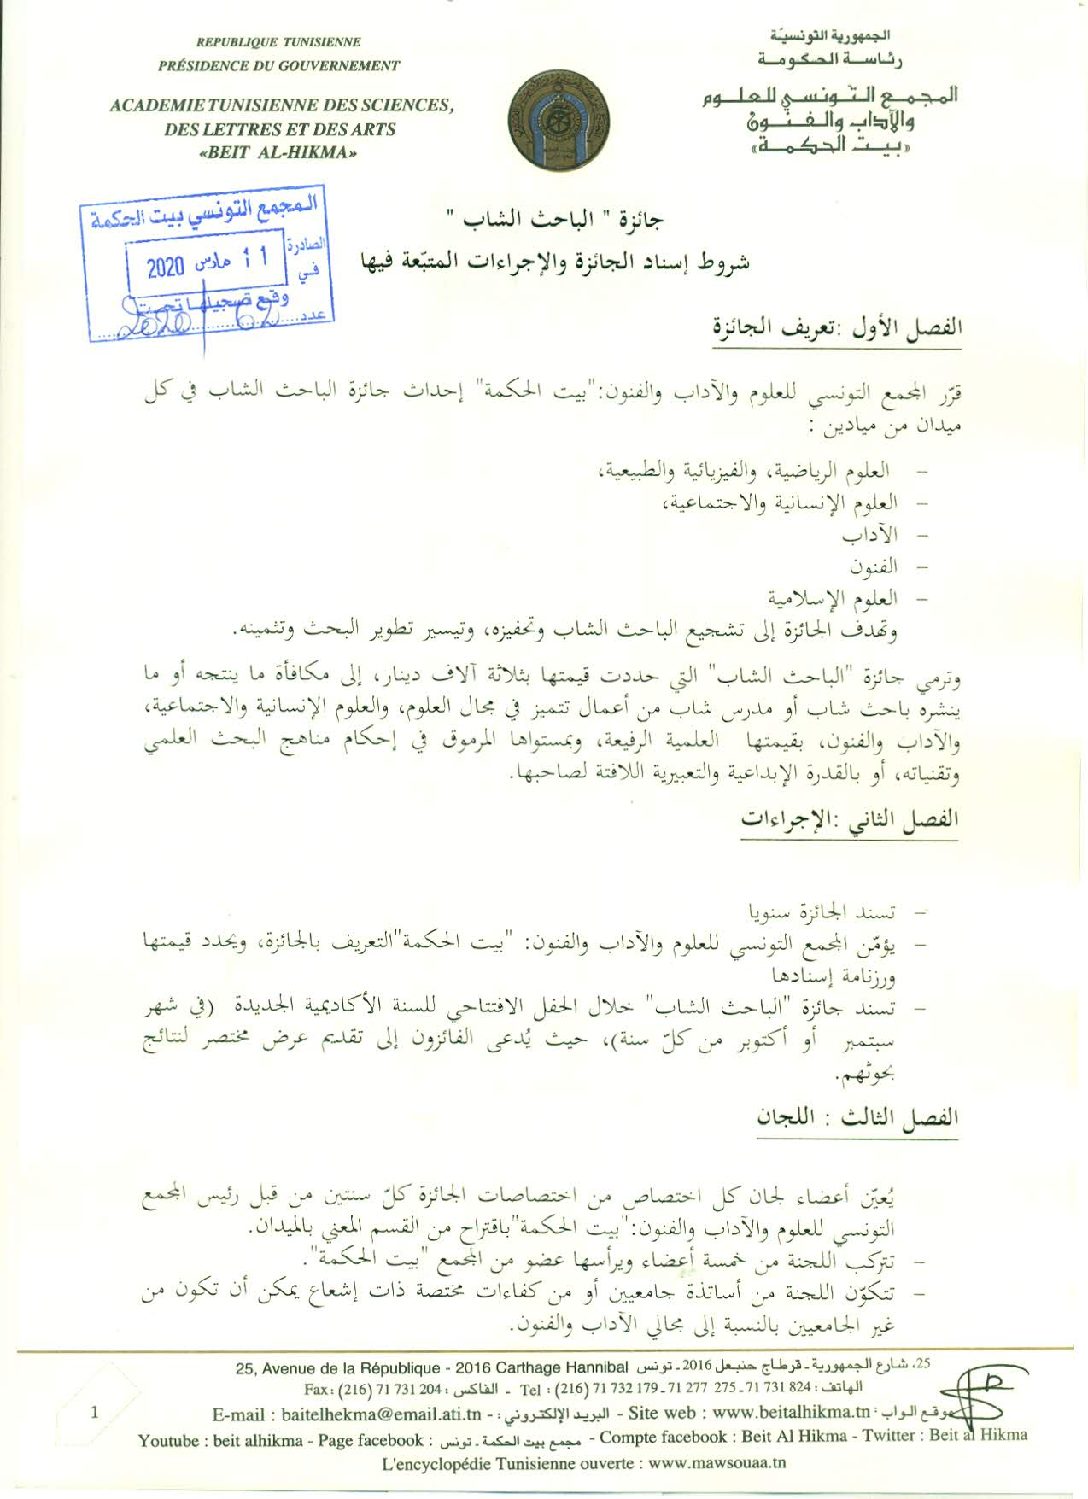 REPUBLIQUE TUNISIENNE
PRÉSIDENCE DU GOUVERNEMENT
ACADEMIE TUNISIENNE DES SCIENCES,
DES LETTRES ET DES ARTS
«BEIT AL-HIKMA»
الجمهورية التونسيّة
رئاسة الحكومة
المجمع التونسي للعلوم
والآداب والفنون
«بيت الحكمة»
المجمع التونسي بيت الحكمة
الصادرة
في
11 مارس 2020
وقع تسجيلها تحت
عدد 62 2020
جائزة " الباحث الشاب "
شروط إسناد الجائزة والإجراءات المتبّعة فيها
الفصل الأول :تعريف الجائزة
قرّر المجمع التونسي للعلوم والآداب والفنون:"بيت الحكمة" إحداث جائزة الباحث الشاب في كل
ميدان من ميادين :
– العلوم الرياضية، والفيزيائية والطبيعية،
– العلوم الإنسانية والاجتماعية،
– الآداب
– الفنون
– العلوم الإسلامية
وتهدف الجائزة إلى تشجيع الباحث الشاب وتحفيزه، وتيسير تطوير البحث وتثمينه.
وترمي جائزة "الباحث الشاب" التي حددت قيمتها بثلاثة آلاف دينار، إلى مكافأة ما ينتجه أو ما
ينشره باحث شاب أو مدرس شاب من أعمال تتميز في مجال العلوم، والعلوم الإنسانية والاجتماعية،
والآداب والفنون، بقيمتها العلمية الرفيعة، وبمستواها المرموق في إحكام مناهج البحث العلمي
وتقنياته، أو بالقدرة الإبداعية والتعبيرية اللافتة لصاحبها.
الفصل الثاني :الإجراءات
– تسند الجائزة سنويا
– يؤمّن المجمع التونسي للعلوم والآداب والفنون: "بيت الحكمة"التعريف بالجائزة، ويحدد قيمتها
ورزنامة إسنادها
– تسند جائزة "الباحث الشاب" خلال الحفل الافتتاحي للسنة الأكاديمية الجديدة (في شهر
سبتمبر أو أكتوبر من كلّ سنة)، حيث يُدعى الفائزون إلى تقديم عرض مختصر لنتائج
بحوثهم.
الفصل الثالث : اللجان
يُعيّن أعضاء لجان كل اختصاص من اختصاصات الجائزة كلّ سنتين من قبل رئيس المجمع
التونسي للعلوم والآداب والفنون:"بيت الحكمة"باقتراح من القسم المعني بالميدان.
– تتركب اللجنة من خمسة أعضاء ويرأسها عضو من المجمع "بيت الحكمة".
– تتكوّن اللجنة من أساتذة جامعيين أو من كفاءات مختصة ذات إشعاع يمكن أن تكون من
غير الجامعيين بالنسبة إلى مجالي الآداب والفنون.
25, Avenue de la République - 2016 Carthage Hannibal 25، شارع الجمهورية ـ قرطاج حنبعل 2016 ـ تونس
Fax : (216) 71 731 204 : الفاكس - Tel : (216) 71 732 179 - 71 277 275 - 71 731 824 : الهاتف
E-mail : baitelhekma@email.ati.tn - : البريد الإلكتروني - Site web : www.beitalhikma.tn : موقع الواب
1
Youtube : beit alhikma - Page facebook : مجمع بيت الحكمة ـ تونس - Compte facebook : Beit Al Hikma - Twitter : Beit al Hikma
L'encyclopédie Tunisienne ouverte : www.mawsouaa.tn